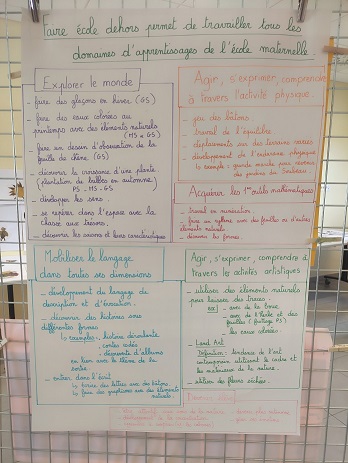 Faire école dehors permet de travailler tous les
domaines d'apprentissages de l'école maternelle.
Explorer le monde
- faire des glaçons en hiver (GS)
- faire des eaux colorées au
printemps avec des éléments naturels
(MS et GS)
- faire un dessin d'observation de la
feuille de chêne. (GS)
- découvrir la croissance d'une plante
(plantation de bulbes en automne)
PS - MS - GS
- développer les sens.
- se repérer dans l'espace avec la
chasse aux trésors.
- découvrir les saisons et leurs caractéristiques
Agir, s'exprimer, comprendre
à travers l'activité physique.
- jeu des bâtons.
- travail de l'équilibre.
- déplacements sur des terrains variés
- développement de l'endurance physique
grande marche pour revenir
des jardins du
Acquérir les 1ers outils mathématiques
- travail en numération
- faire un rythme avec des feuilles ou d'autres
éléments naturels
- découvrir les formes
Mobiliser le langage
dans toutes ses dimensions
- développement du langage de
description et d'évocation.
- découvrir des histoires sous
différentes formes
exemples: histoire déroulante
contes
découverte d'albums
en lien avec le thème de la
sortie.
- entrer dans l'écrit
forme des lettres avec des bâtons
faire des graphismes avec des éléments
naturels.
Agir, s'exprimer, comprendre à
travers les activités artistiques
- utiliser des éléments naturels
pour laisser des traces.
ex: - avec de la terre
- avec de l'herbe et des
feuilles (frottage PS)
- les eaux colorées.
- Land Art
Définition: tendance de l'art
contemporain utilisant le cadre et
les matériaux de la nature.
- utiliser des fleurs séchées.